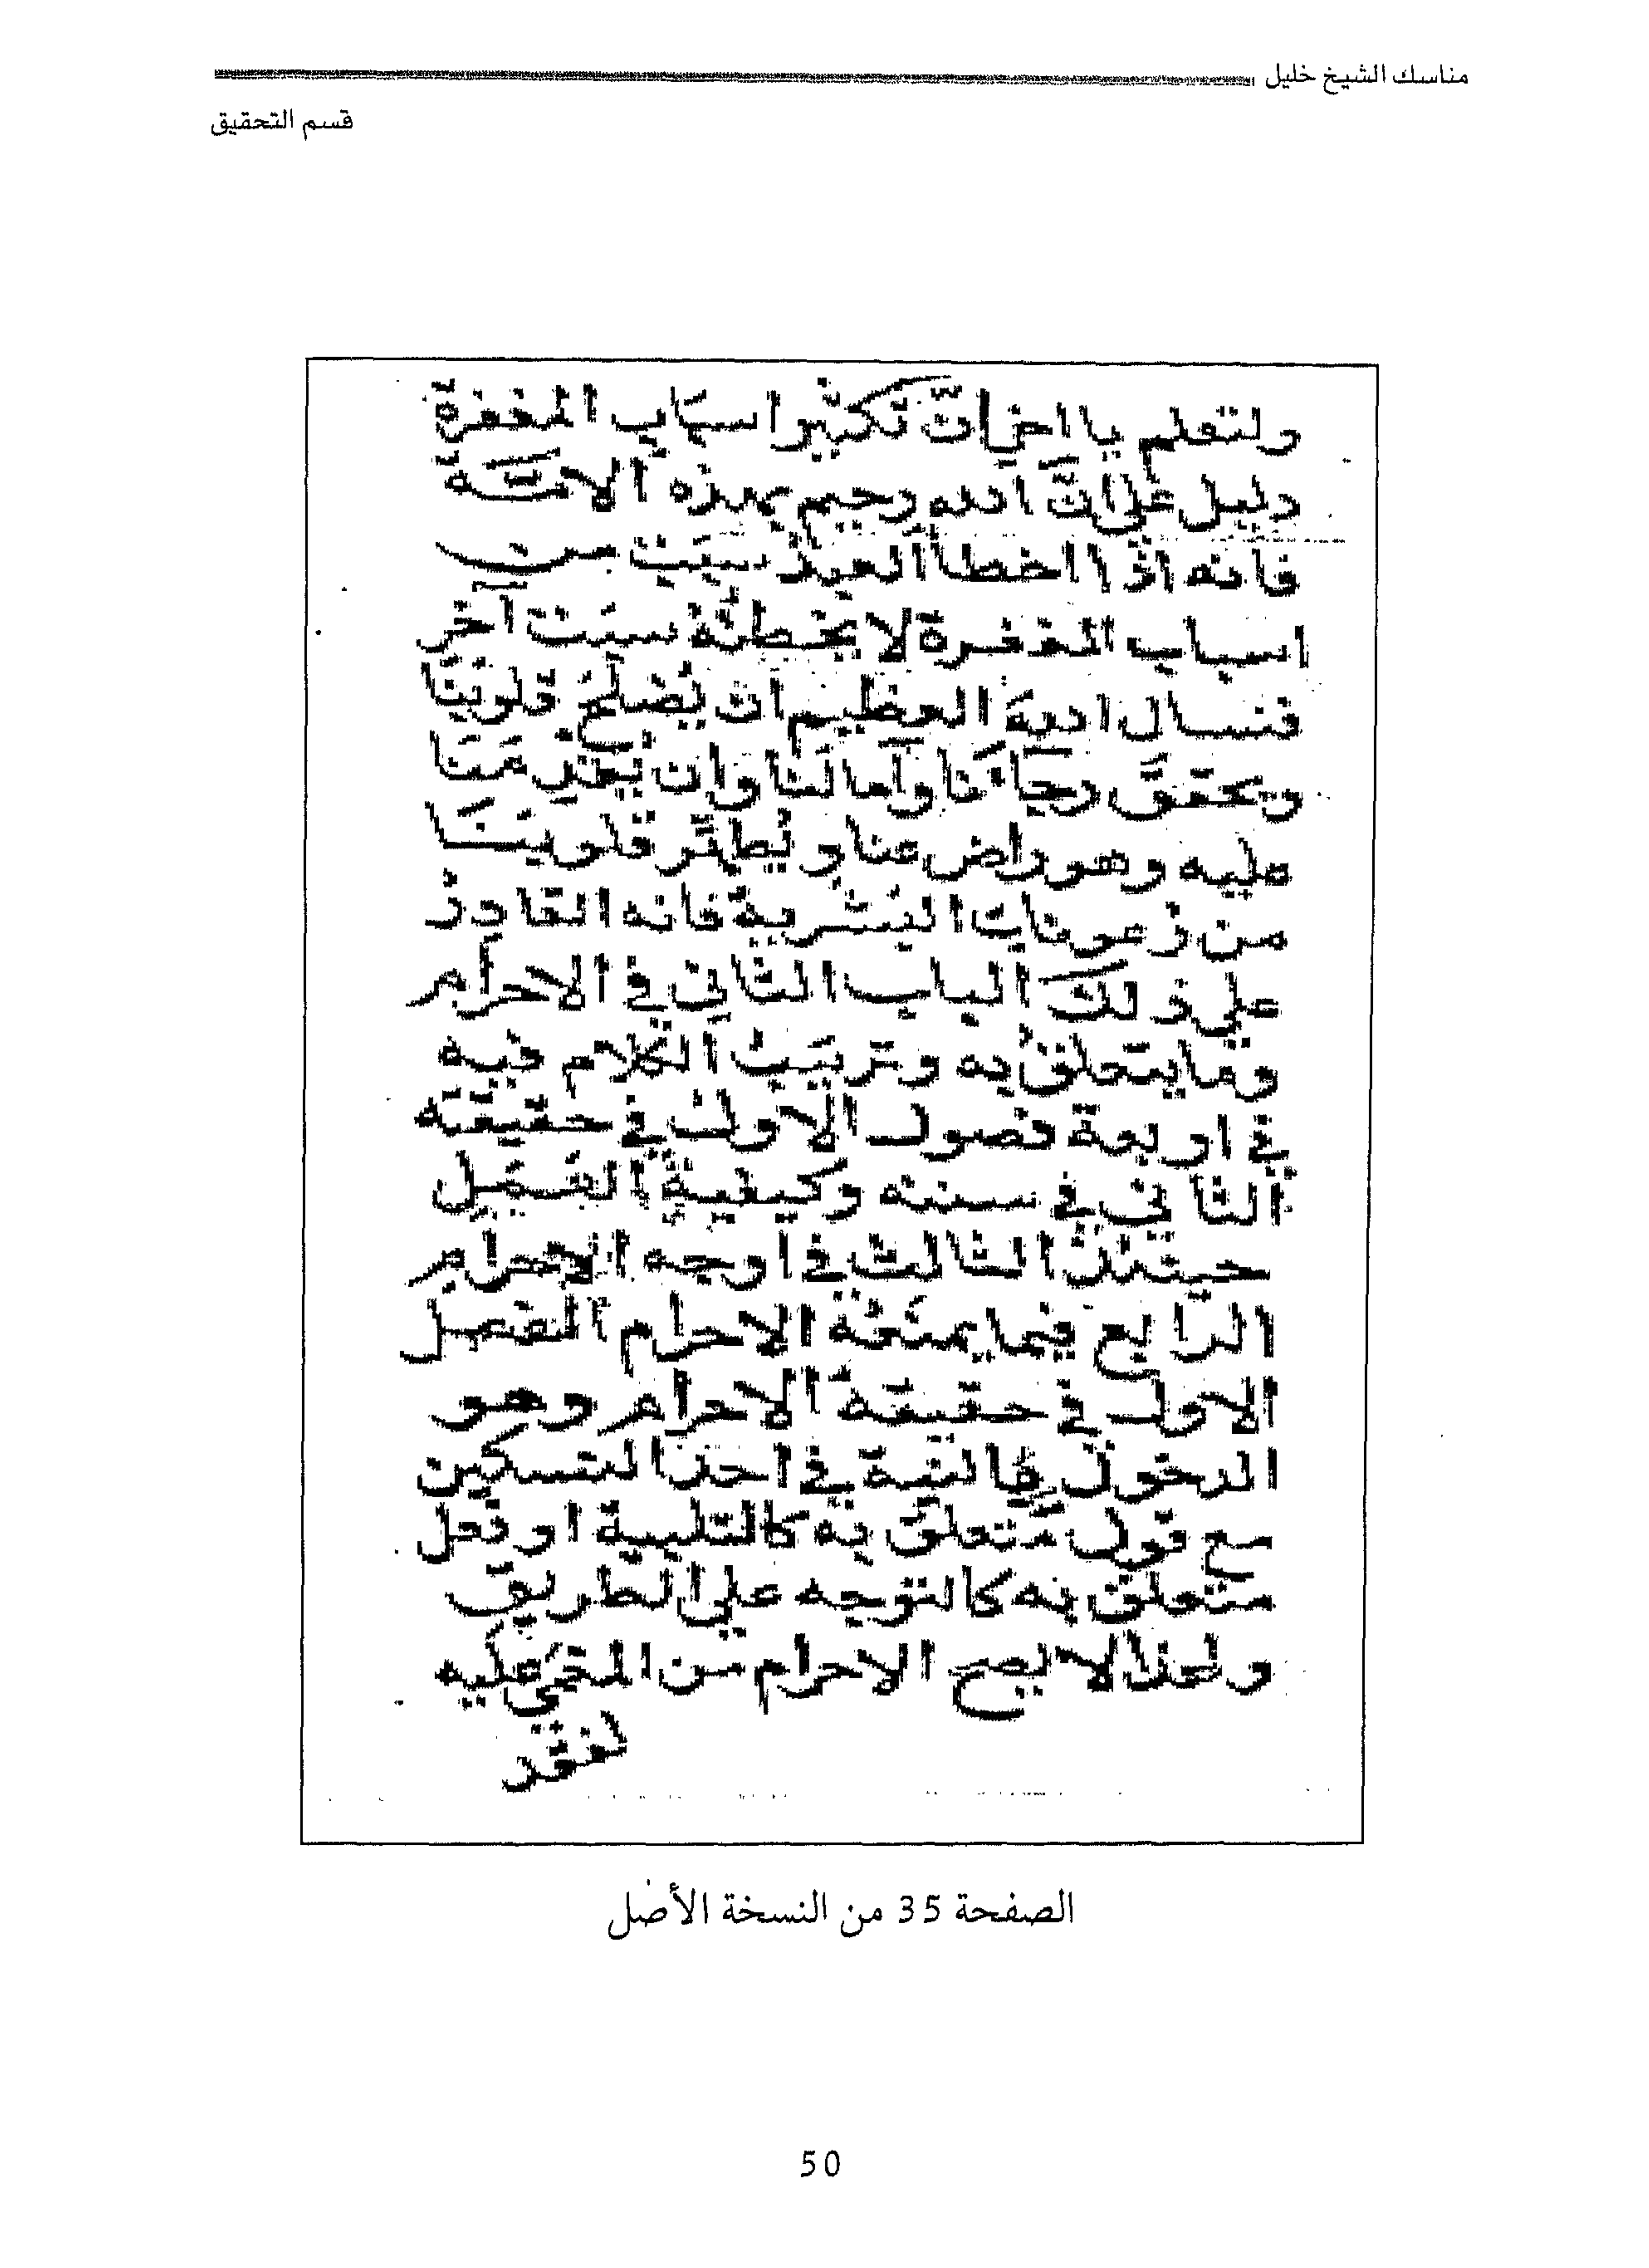 مناسك الشيخ خليل
قسم التحقيق
ولتعلم يا اخي انّ تكثير اسباب المغفرة
دليل على انّ الله رحيم بهذه الامّة
فانه اذا اخطا العبد سبب من
اسباب المغفرة لا يخطئه سبب آخر
فنسال الله العظيم ان يصلح قلوبنا
ويحقق رجاءنا وآمالنا وان
عليه وهو راض عنا و يُطهّر قلوبنا
من رعونات البشرية فانه القادر
على ذلك الباب الثاني في الاحرام
وما يتعلق به وترتيب الكلام فيه
في اربعة فصول الاول في حقيقته
الثاني في سننه وكيفية الفعل
حينئذ الثالث في اوجه الاحرام
الرابع فيما يمنعه الاحرام الفصل
الاول في حقيقة الاحرام وهو
الدخول بالنية في احد النسكين
مع قول متعلق به كالتلبية او فعل
متعلق به كالتوجه على الطريق
ولهذا لا يصح الاحرام من المغمى عليه
لفقد
الصفحة 35 من النسخة الأصل
50